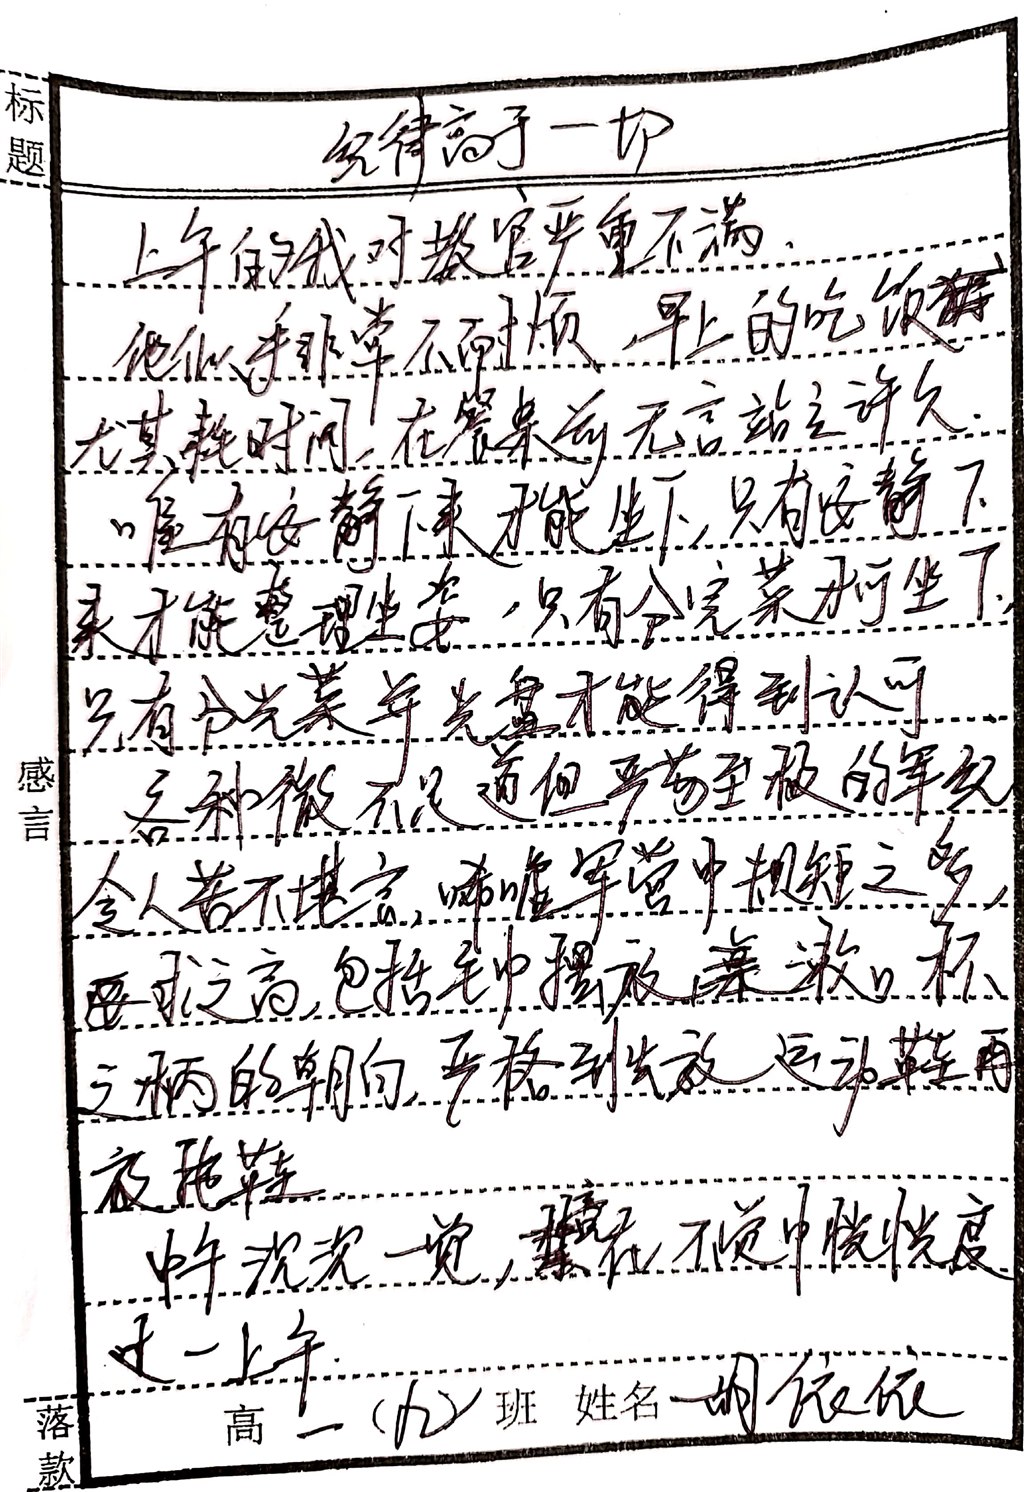 标题
纪律高于一切
上午的我对教官严重不满.
他们似乎非常不耐烦,早上的吃饭
尤其耗时间,在餐桌前无言站立许久.
唯有安静下来才能坐下,只有安静下
来才能整理坐姿,只有分完菜才可坐下,
只有分光菜并光盘才能得到认可
各种微不足道但严苛至极的军纪
令人苦不堪言,唏嘘军营中规矩之多,
要求之高,包括毛巾摆放,漱口杯
之柄的朝向,严格到先放运动鞋再
放拖鞋.
中午沉沉一觉,竟在不觉中恍恍度
过一上午.
感言
落款
高一(九)班 姓名 胡依依